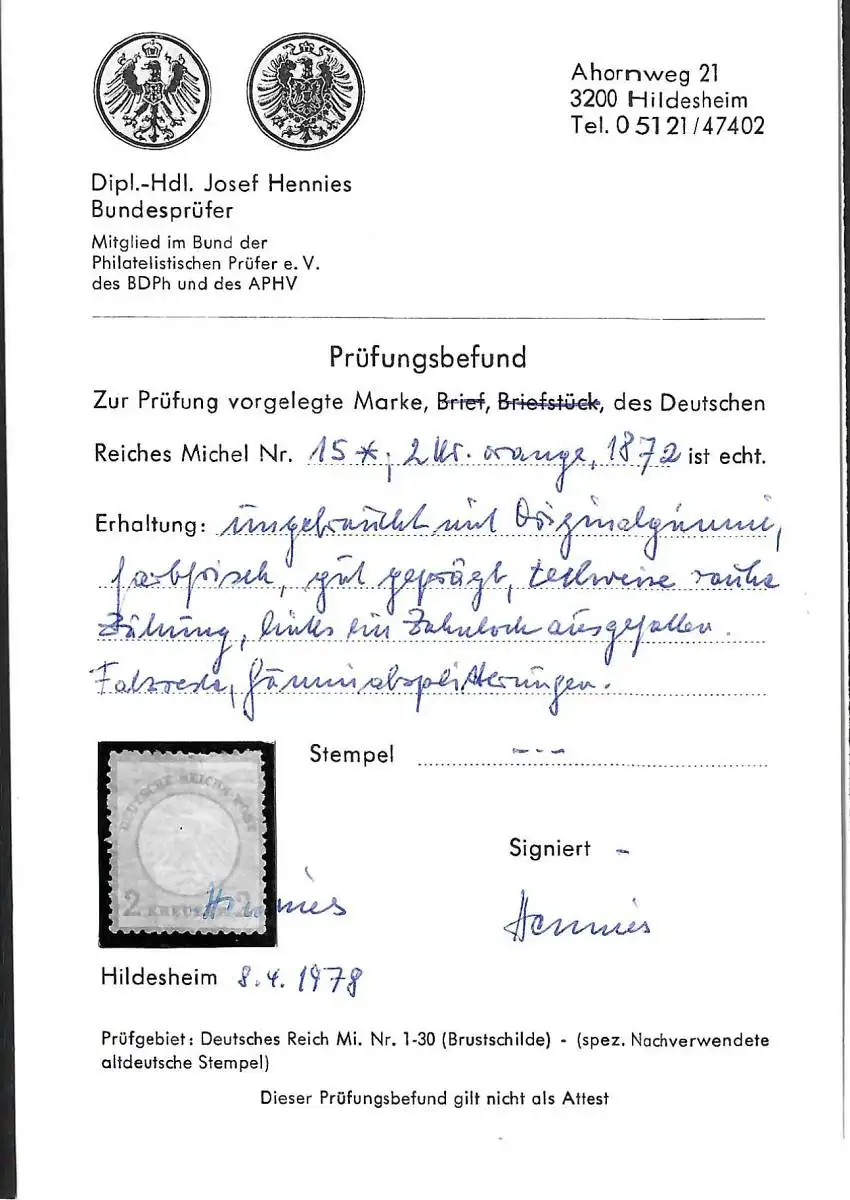 Ahornweg 21
3200 Hildesheim
Tel. 0 51 21 / 47402
Dipl.-Hdl. Josef Hennies
Bundesprüfer
Mitglied im Bund der
Philatelistischen Prüfer e. V.
des BDPh und des APHV
Prüfungsbefund
Zur Prüfung vorgelegte Marke, Brief, Briefstück, des Deutschen
Reiches Michel Nr. 15 *; 2 Kr. orange, 1872 ist echt.
Erhaltung: ungebraucht mit Originalgummi,
farbfrisch, gut geprägt, teilweise rauhe
Zähnung, links ein Zahnloch ausgefallen.
Falzreste, Gummiabsplitterungen.
Stempel ---
DEUTSCHE REICHS-POST
Signiert -
2 KREUZER 2
Hennies
Hennies
Hildesheim 8.4.1978
Prüfgebiet: Deutsches Reich Mi. Nr. 1-30 (Brustschilde) - (spez. Nachverwendete
altdeutsche Stempel)
Dieser Prüfungsbefund gilt nicht als Attest